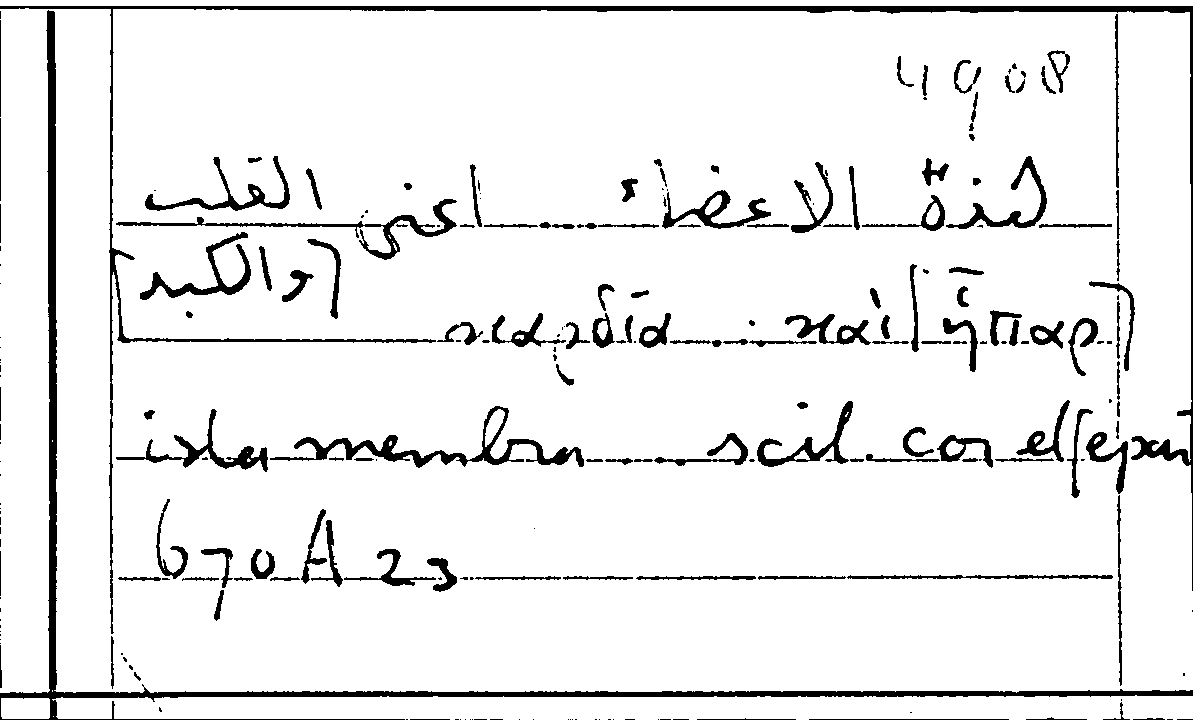 4908
لهذة الاعضاء ... اعنى القلب
[والكبد]
καρδία ... καὶ [ἧπαρ]
ista membra ... scil. cor et [epar
670 A 23